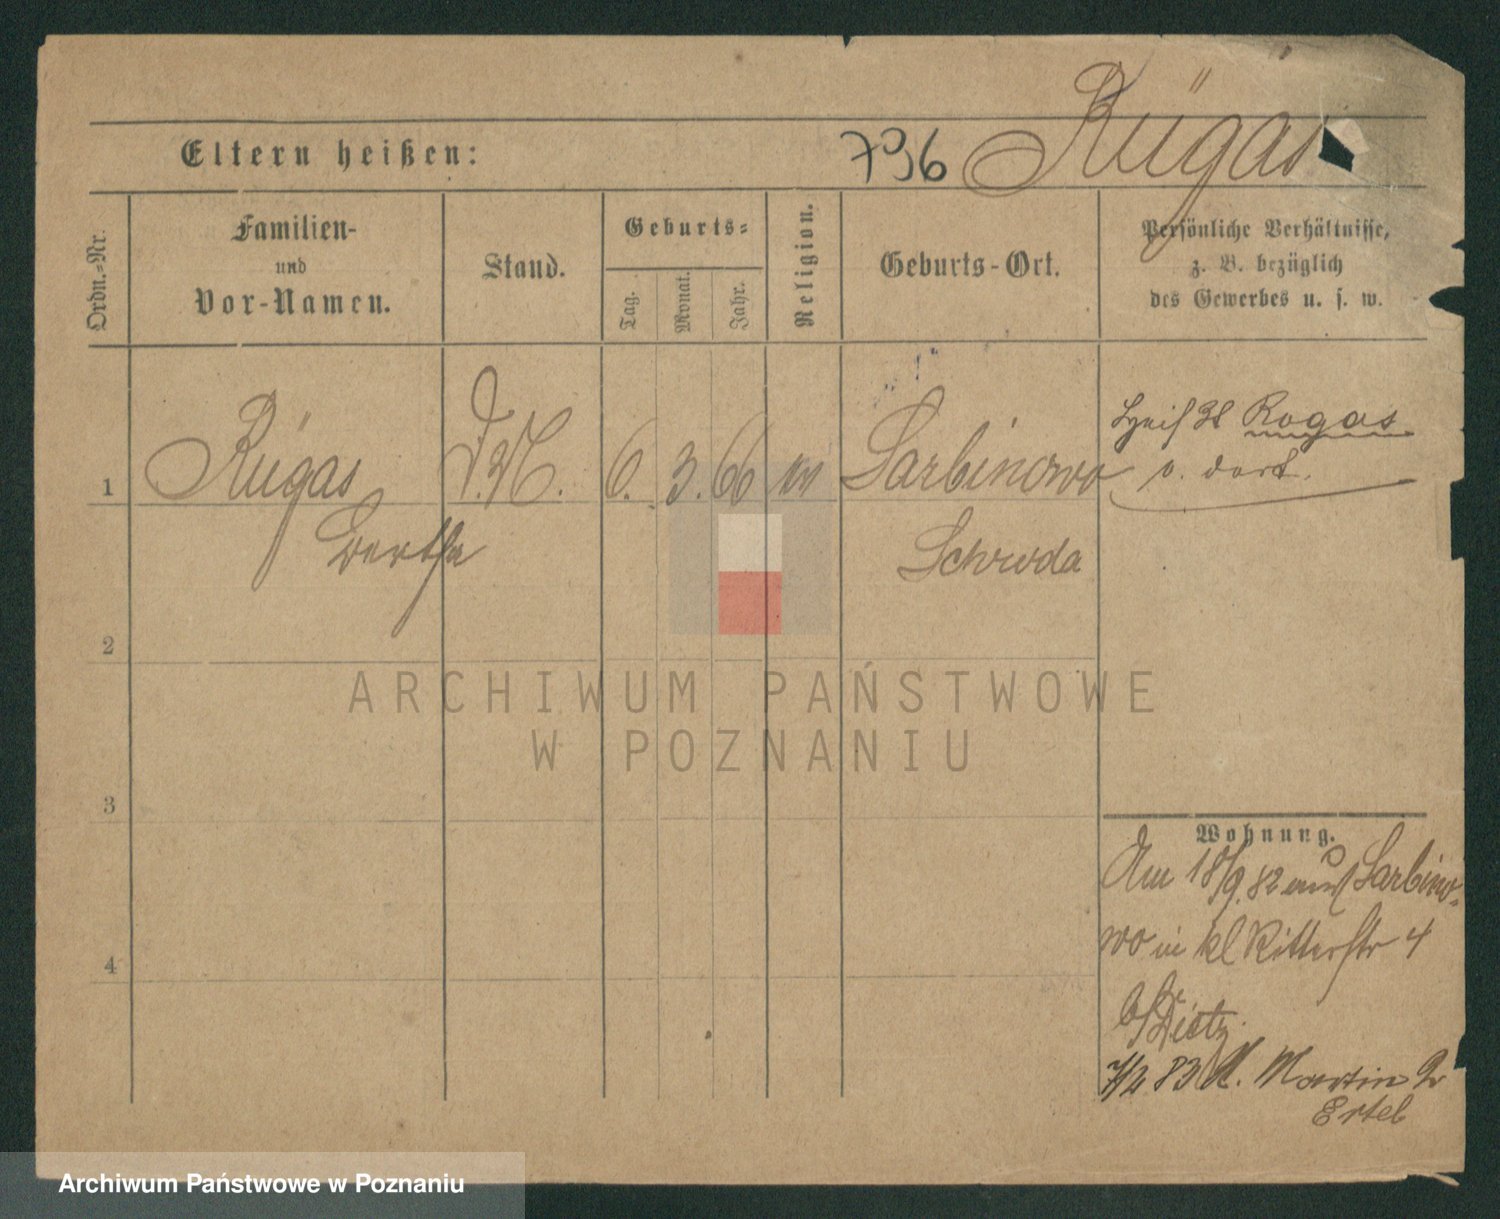 Rügas
Eltern heißen:
Ordn.-Nr.
Familien-
und
Vor-Namen.
Stand.
Geburts-
Tag.
Monat.
Jahr.
Religion.
Geburts-Ort.
Persönliche Verhältnisse,
z. B. bezüglich
des Gewerbes u. s. w.
1
Rügas
Bertha
D. M.
6.
3.
66
Sarbinowo
Schroda
Rogas
v. dort.
2
3
4
Wohnung.
Am 18/9. 82 aus Sarbino-
wo in kl Ritterstr 4
b/ Dietz
83 Martin
Ertel
ARCHIWUM PAŃSTWOWE
W POZNANIU
Archiwum Państwowe w Poznaniu